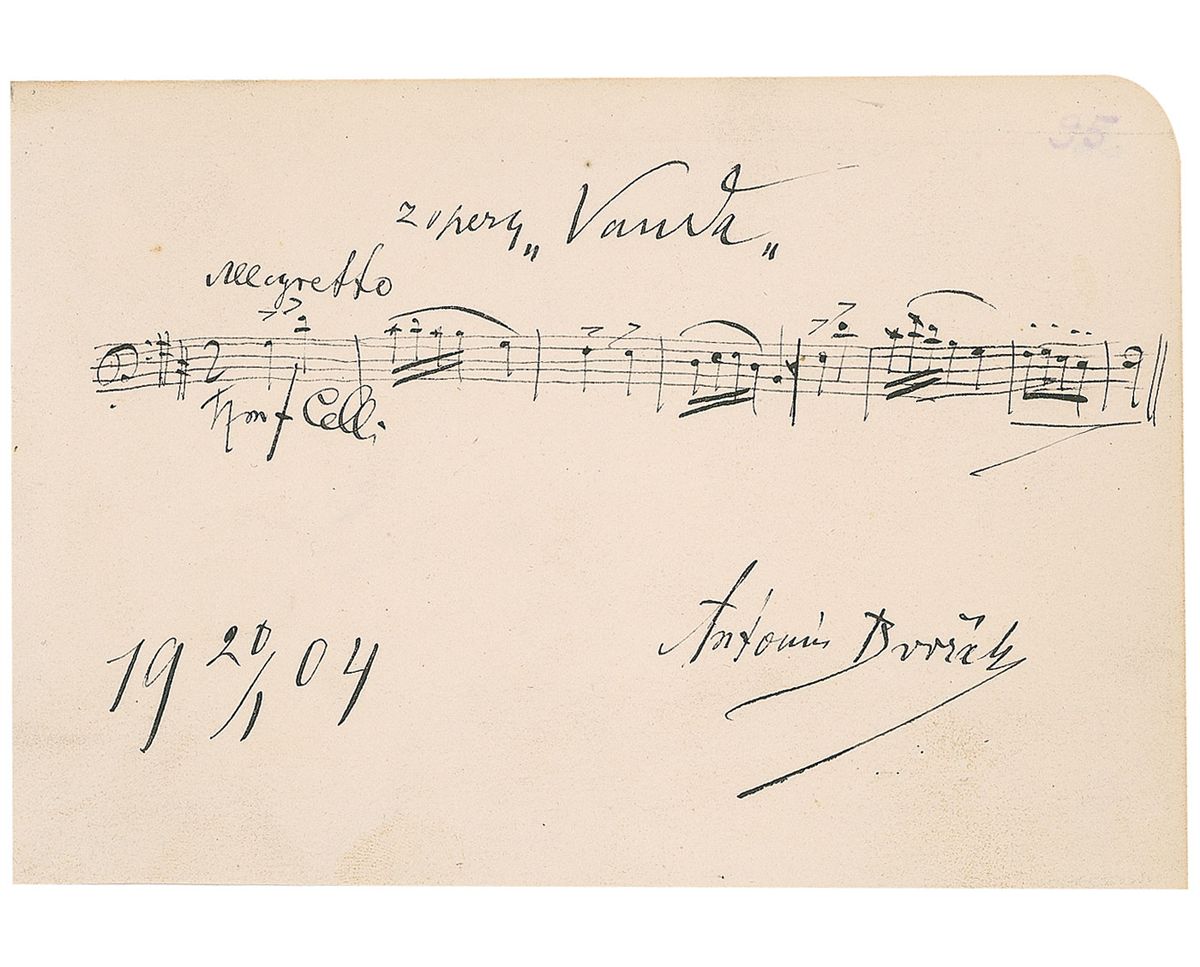 95
z opery „Vanda„
Allegretto
2
f Celli
19 20/1 04
Antonín Dvořák